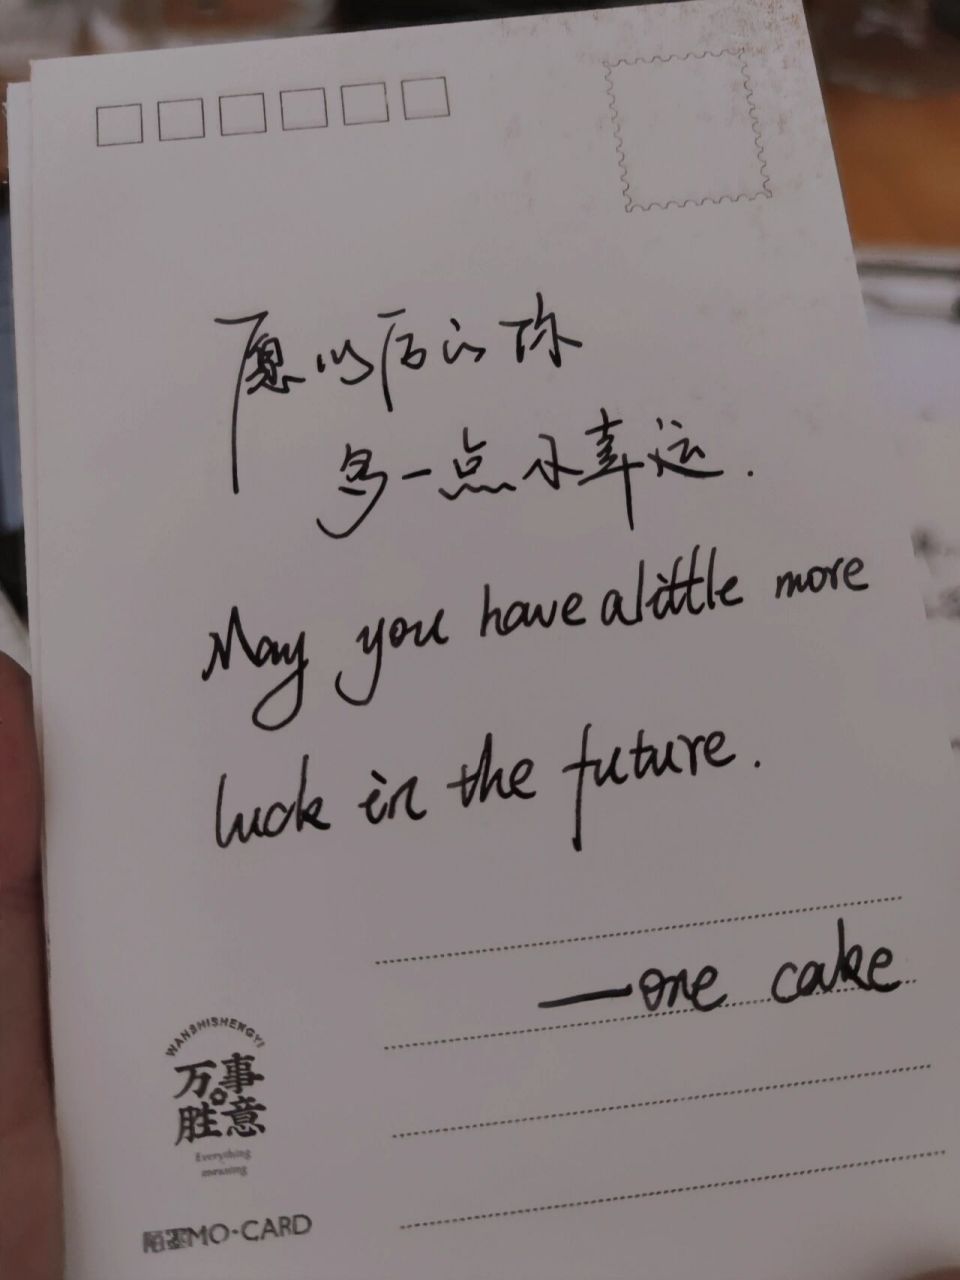 愿以后的你
多一点小幸运.
May you have a little more
luck in the future.
—one cake
WANSHISHENGYI
万事
胜意
Everything
meaning
陌墨MO-CARD